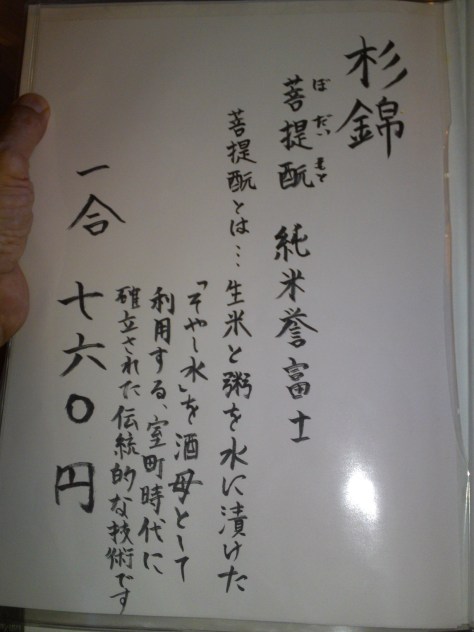 杉錦
ぼだいもと
菩提酛 純米誉富士
菩提酛とは… 生米と粥を水に漬けた
「そやし水」を酒母として
利用する、室町時代に
確立された伝統的な技術です
一合 七六〇円